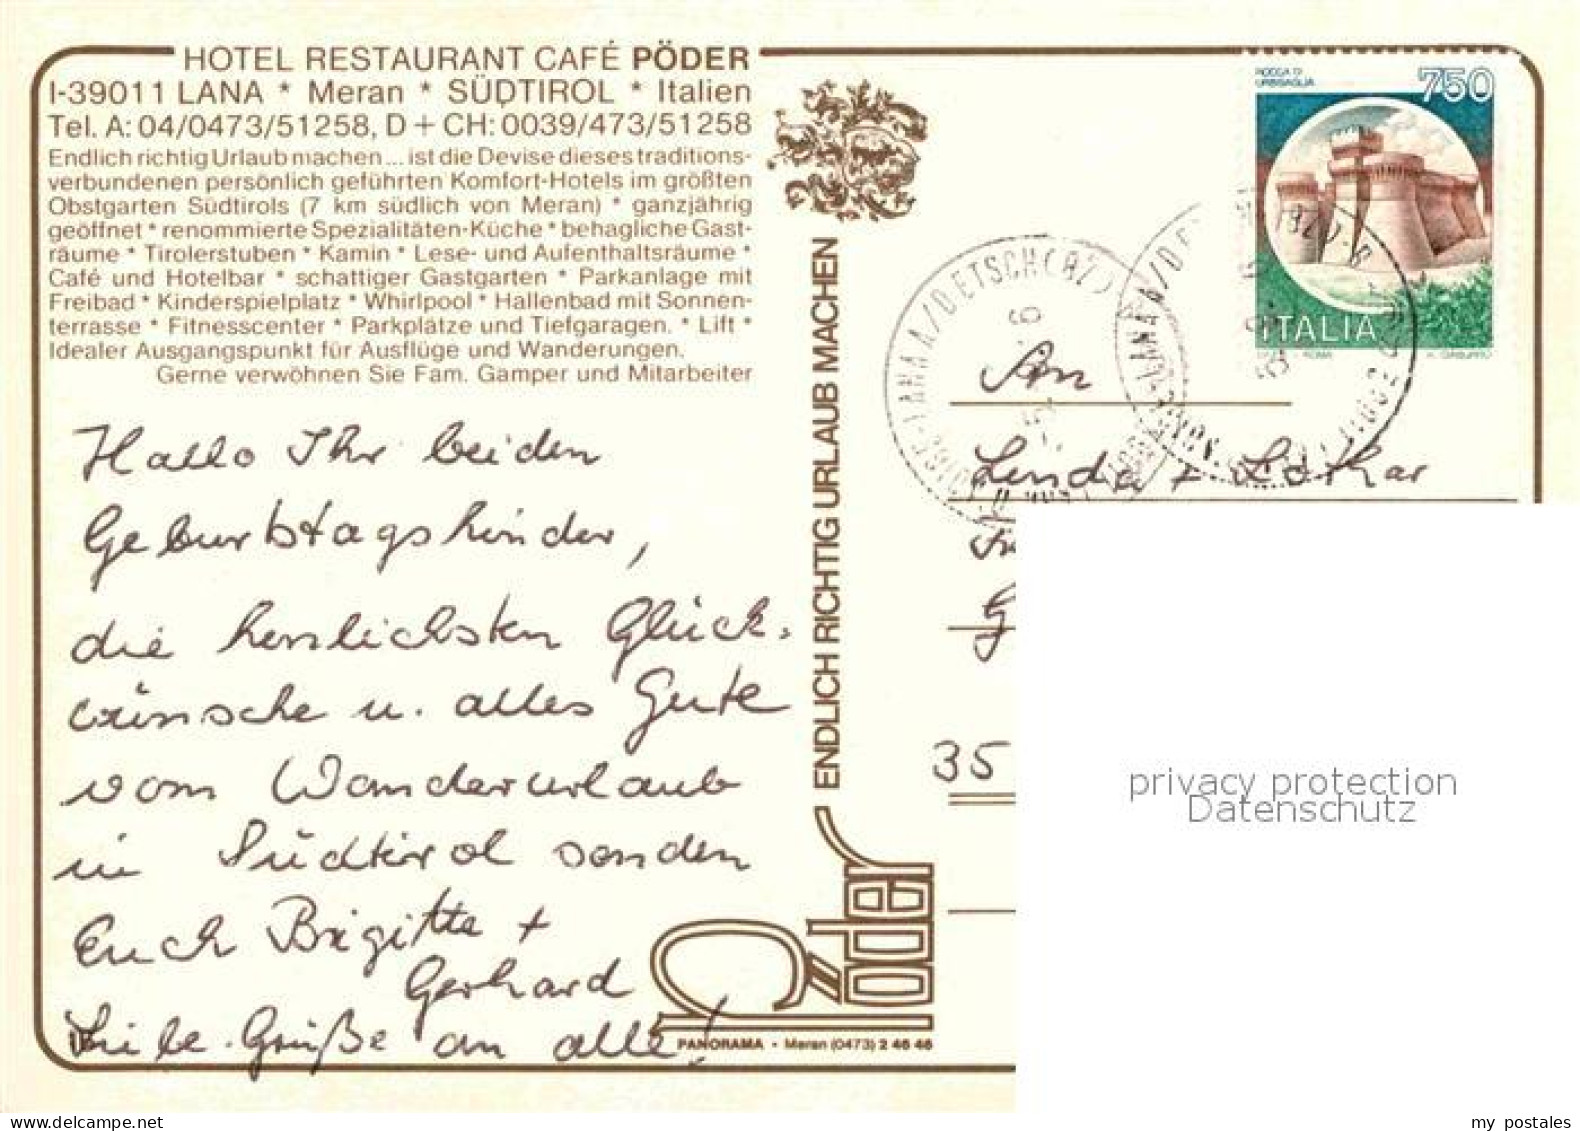 HOTEL RESTAURANT CAFÉ PÖDER
I-39011 LANA * Meran * SÜDTIROL * Italien
Tel. A: 04/0473/51258, D + CH: 0039/473/51258
Endlich richtig Urlaub machen ... ist die Devise dieses traditions-
verbundenen persönlich geführten Komfort-Hotels im größten
Obstgarten Südtirols (7 km südlich von Meran) * ganzjährig
geöffnet * renommierte Spezialitäten-Küche * behagliche Gast-
räume * Tirolerstuben * Kamin * Lese- und Aufenthaltsräume *
Café und Hotelbar * schattiger Gastgarten * Parkanlage mit
Freibad * Kinderspielplatz * Whirlpool * Hallenbad mit Sonnen-
terrasse * Fitnesscenter * Parkplätze und Tiefgaragen. * Lift *
Idealer Ausgangspunkt für Ausflüge und Wanderungen.
Gerne verwöhnen Sie Fam. Gamper und Mitarbeiter
Hallo Ihr beiden
Geburtstagskinder,
die herzlichsten Glück-
wünsche u. alles Gute
vom Wanderurlaub
in Südtirol senden
Euch Brigitte +
Gerhard
Liebe Grüße an alle!
ENDLICH RICHTIG URLAUB MACHEN
Pöder
PANORAMA - Meran (0473) 2 46 46
ROCCA DI
URBISAGLIA
750
ITALIA
LANA A/DETSCH (BZ)
An
Linda + Lothar
35
privacy protection
Datenschutz
my postales